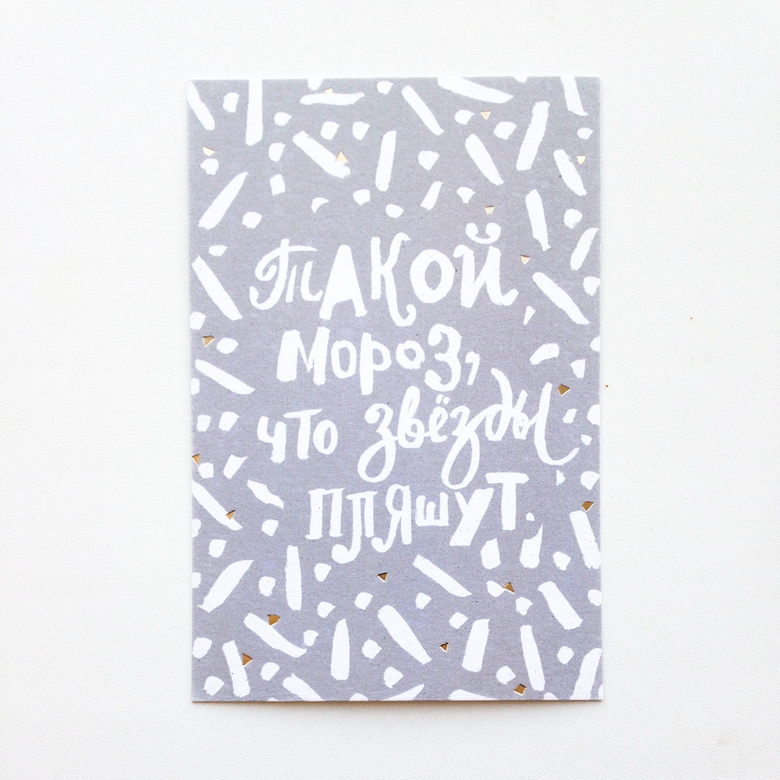 Такой
мороз,
что звёзды
пляшут.